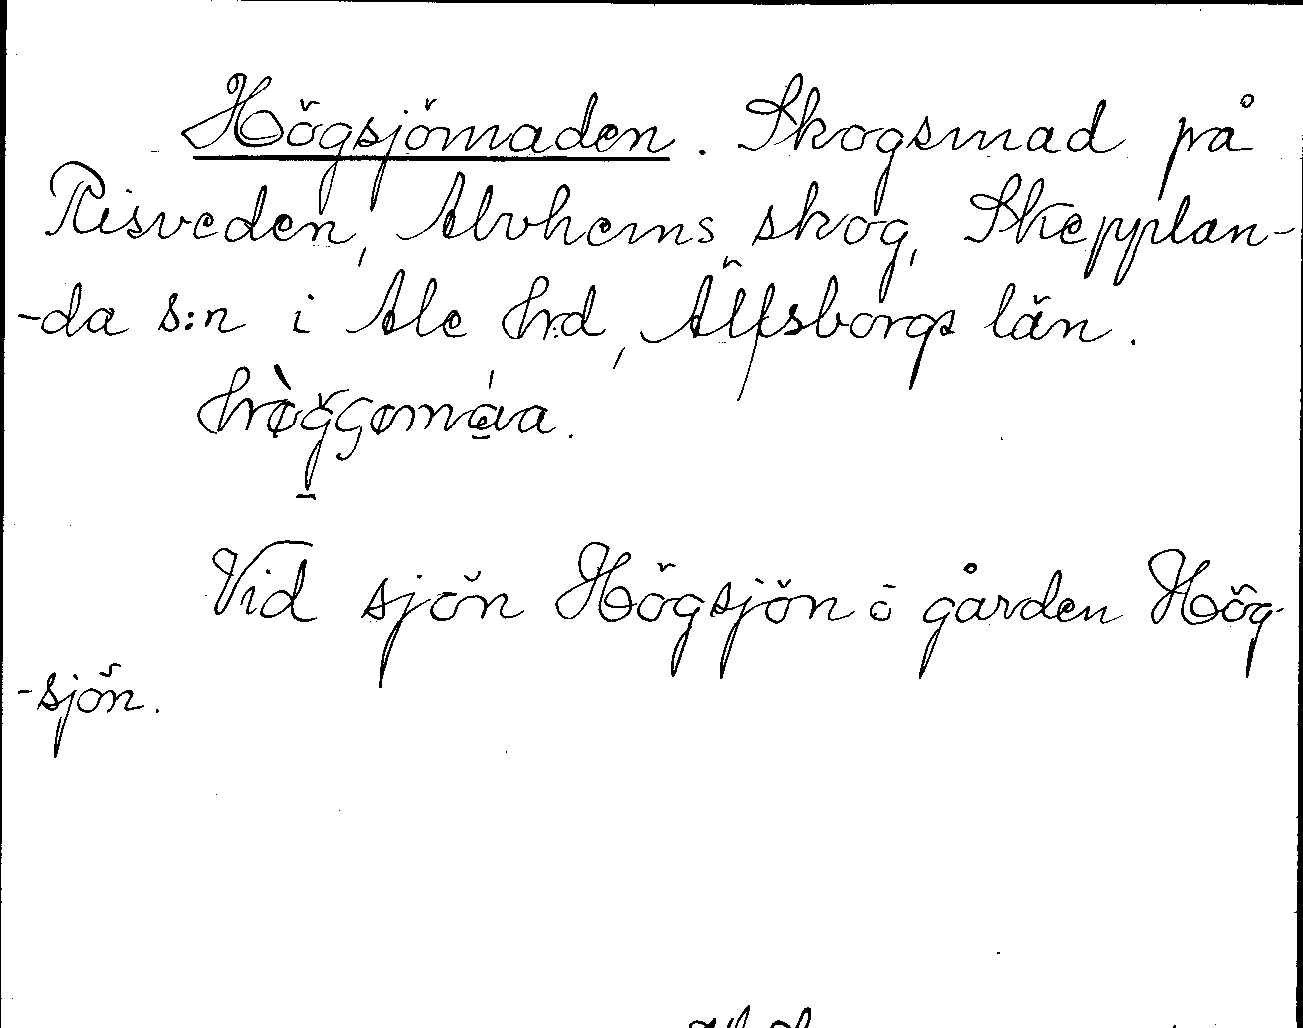 Högsjömaden. Skogsmad på
Risveden, Alvhems skog, Skepplan-
-da s:n i Ale hrd, Älfsborgs län.
Vid sjön Högsjön o gården Hög-
-sjön.